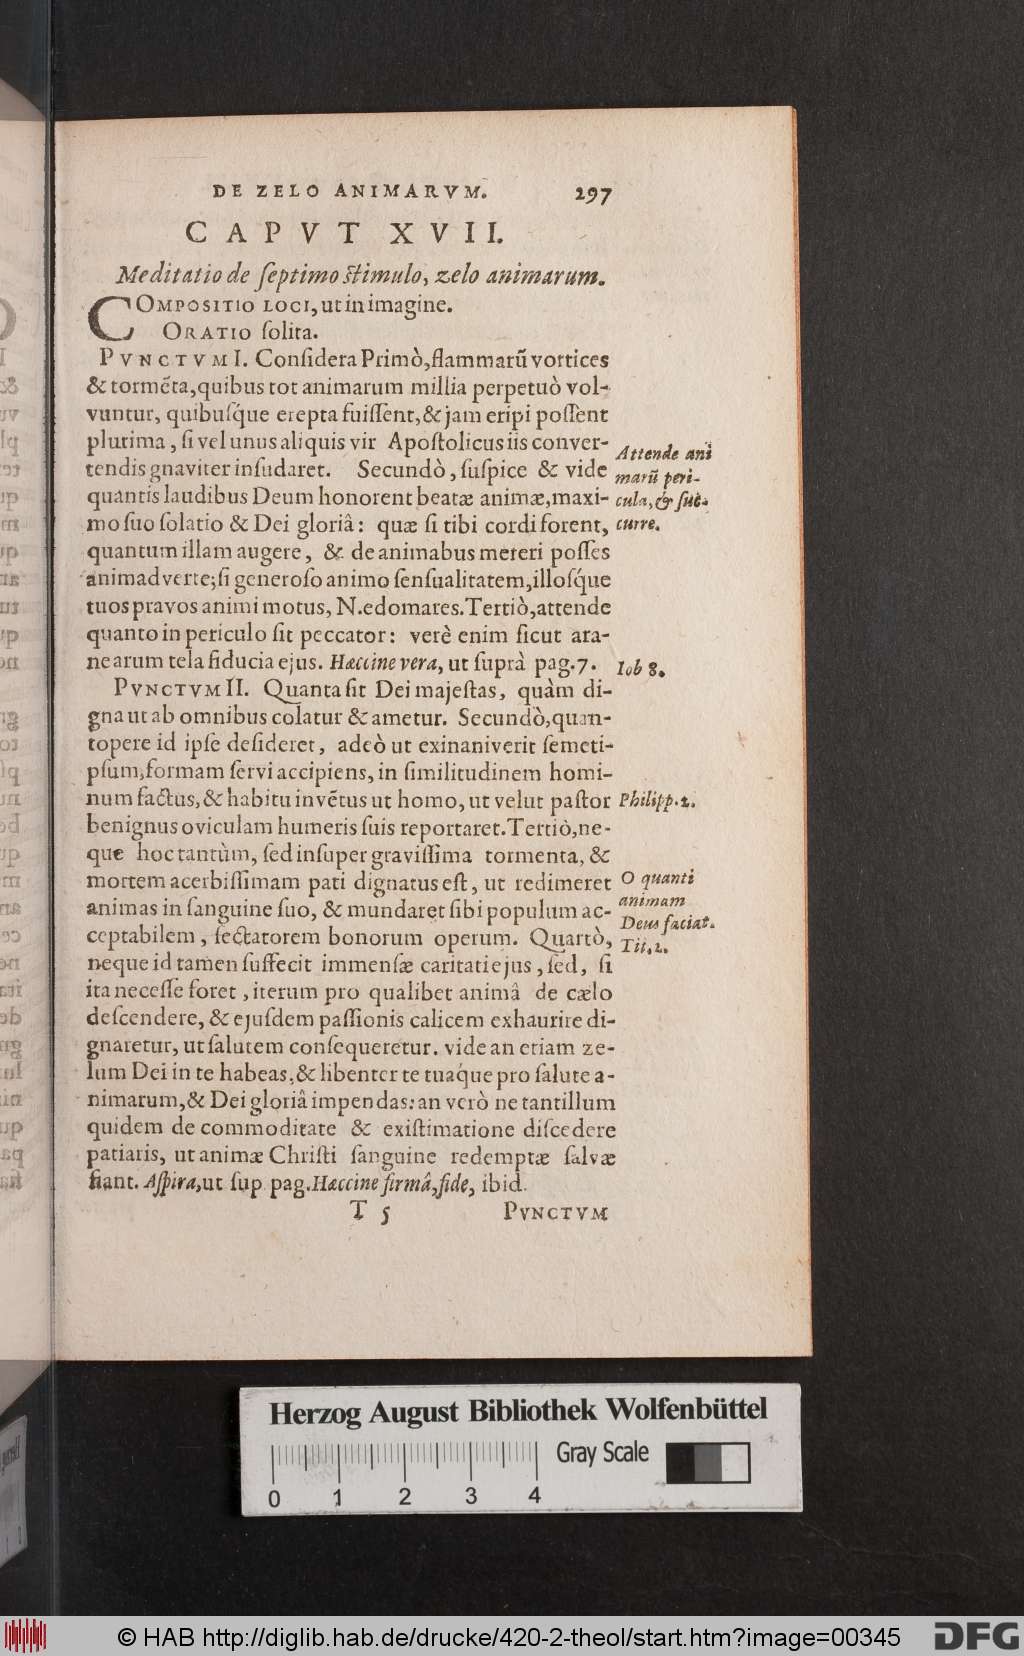 DE ZELO ANIMARVM. 297
CAPVT XVII.
Meditatio de ſeptimo ſtimulo, zelo animarum.
COMPOSITIO LOCI, ut in imagine.
ORATIO ſolita.
PVNCTVM I. Conſidera Primò, flammarũ vortices
& tormẽta, quibus tot animarum millia perpetuò vol-
vuntur, quibuſq́ue erepta fuiſſent, & jam eripi poſſent
plurima, ſi vel unus aliquis vir Apoſtolicus iis conver-
tendis gnaviter inſudaret. Secundò, ſuſpice & vide
Attende ani
marũ peri-
quantis laudibus Deum honorent beatæ animæ, maxi-
cula, & ſuc-
mo ſuo ſolatio & Dei gloriâ: quæ ſi tibi cordi forent,
curre.
quantum illam augere, & de animabus mereri poſſes
animadverte; ſi generoſo animo ſenſualitatem, illoſq́ue
tuos pravos animi motus, N. edomares. Tertiò, attende
quanto in periculo ſit peccator: verè enim ſicut ara-
nearum tela fiducia ejus. Hæccine vera, ut ſuprà pag. 7.
Iob 8.
PVNCTVM II. Quanta ſit Dei majeſtas, quàm di-
gna ut ab omnibus colatur & ametur. Secundò, quan-
topere id ipſe deſideret, adeò ut exinaniverit ſemeti-
pſum, formam ſervi accipiens, in ſimilitudinem homi-
num factus, & habitu invẽtus ut homo, ut velut paſtor
Philipp. 2.
benignus oviculam humeris ſuis reportaret. Tertiò, ne-
que hoc tantùm, ſed inſuper graviſſima tormenta, &
mortem acerbiſſimam pati dignatus eſt, ut redimeret
O quanti
animam
animas in ſanguine ſuo, & mundaret ſibi populum ac-
Deus faciat.
ceptabilem, ſectatorem bonorum operum. Quartò,
Tit. 2.
neque id tamen ſuffecit immenſæ caritati ejus, ſed, ſi
ita neceſſe foret, iterum pro qualibet animâ de cælo
deſcendere, & ejuſdem paſſionis calicem exhaurire di-
gnaretur, ut ſalutem conſequeretur. vide an etiam ze-
lum Dei in te habeas, & libenter te tuaq́ue pro ſalute a-
nimarum, & Dei gloriâ impendas: an verò ne tantillum
quidem de commoditate & exiſtimatione diſcedere
patiaris, ut animæ Chriſti ſanguine redemptæ ſalvæ
fiant. Aſpira, ut ſup. pag. Hæccine firmâ, fide, ibid.
T 5 PVNCTVM
Herzog August Bibliothek Wolfenbüttel
Gray Scale
0 1 2 3 4
© HAB http://diglib.hab.de/drucke/420-2-theol/start.htm?image=00345
DFG